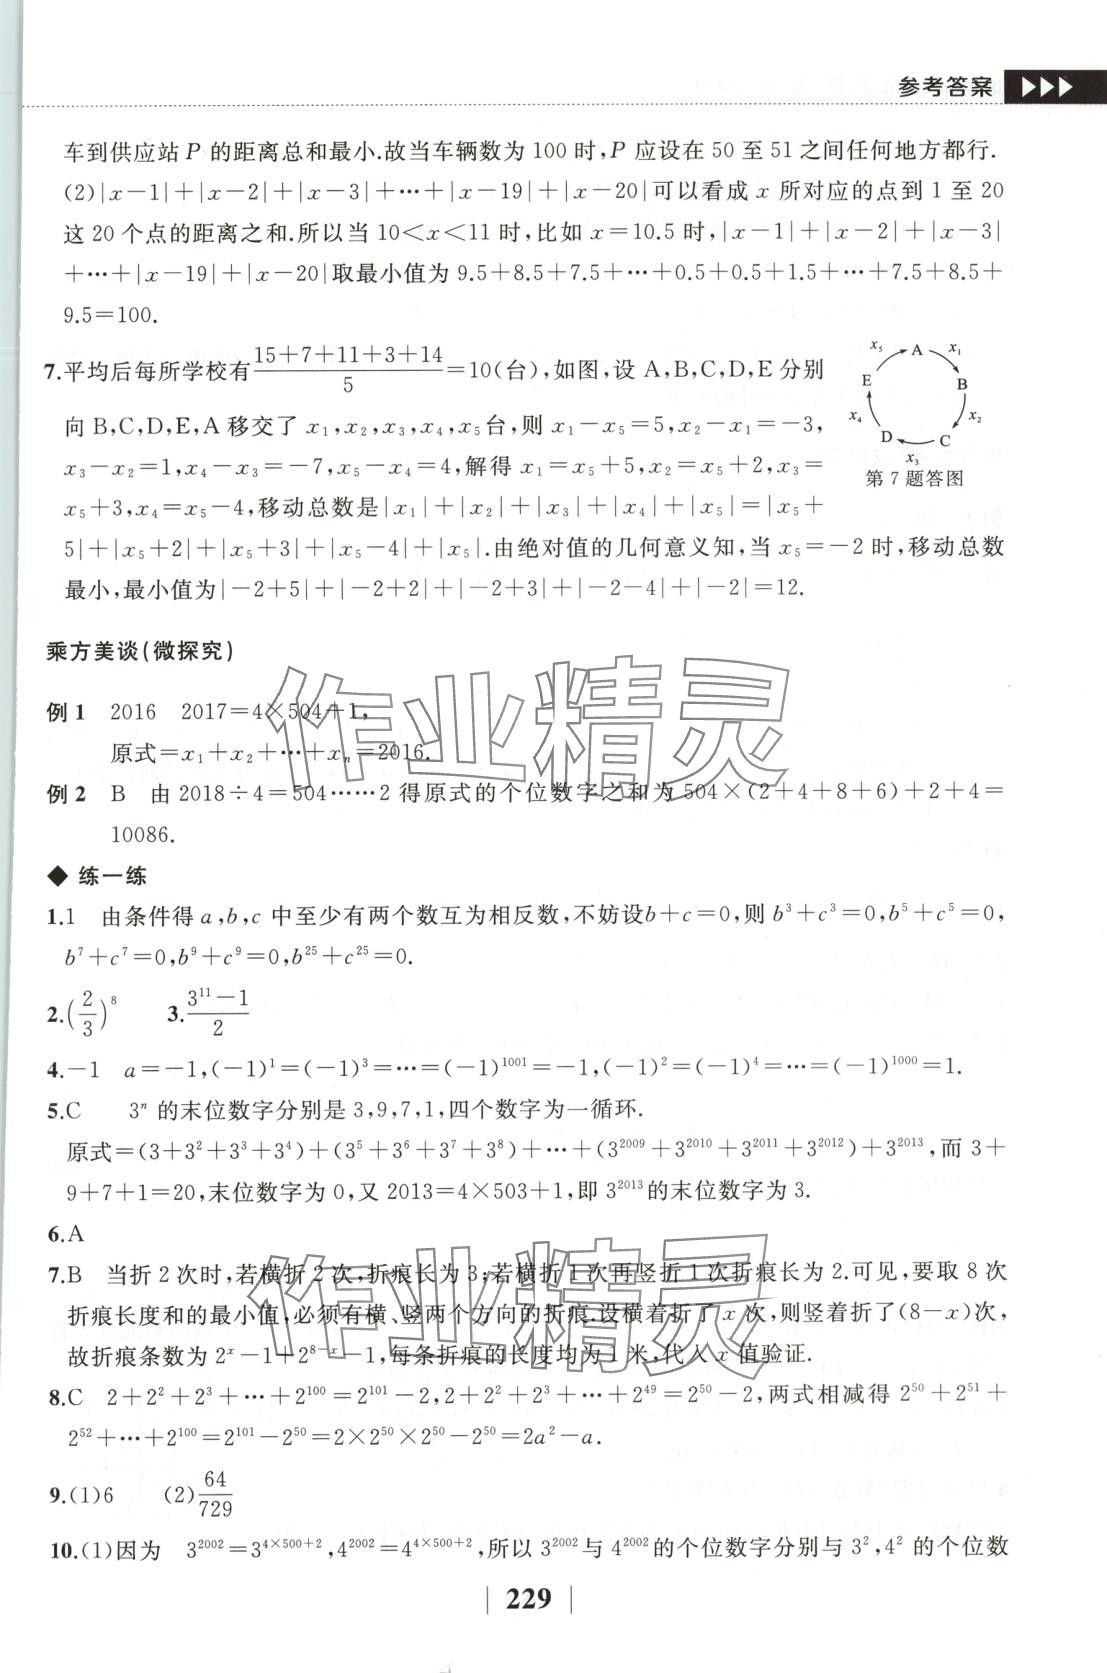 参考答案
车到供应站 P 的距离总和最小.故当车辆数为 100 时,P 应设在 50 至 51 之间任何地方都行.
(2)|x-1|+|x-2|+|x-3|+…+|x-19|+|x-20|可以看成 x 所对应的点到 1 至 20
这 20 个点的距离之和.所以当 10<x<11 时,比如 x=10.5 时,|x-1|+|x-2|+|x-3|
+…+|x-19|+|x-20|取最小值为 9.5+8.5+7.5+…+0.5+0.5+1.5+…+7.5+8.5+
9.5=100.
7.平均后每所学校有\frac{15+7+11+3+14}{5}=10(台),如图,设 A,B,C,D,E 分别
向 B,C,D,E,A 移交了 x₁,x₂,x₃,x₄,x₅台,则 x₁-x₅=5,x₂-x₁=-3,
x₃-x₂=1,x₄-x₃=-7,x₅-x₄=4,解得 x₁=x₅+5,x₂=x₅+2,x₃=
x₅+3,x₄=x₅-4,移动总数是|x₁|+|x₂|+|x₃|+|x₄|+|x₅|=|x₅+
5|+|x₅+2|+|x₅+3|+|x₅-4|+|x₅|.由绝对值的几何意义知,当 x₅=-2 时,移动总数
最小,最小值为|-2+5|+|-2+2|+|-2+3|+|-2-4|+|-2|=12.
x₅ A x₁
E B
x₄ x₂
D C
x₃
第 7 题答图
乘方美谈(微探究)
例 1 2016 2017=4×504+1,
原式=x₁+x₂+…+xₙ=2016.
例 2 B 由 2018÷4=504……2 得原式的个位数字之和为 504×(2+4+8+6)+2+4=
10086.
◆ 练一练
1.1 由条件得 a,b,c 中至少有两个数互为相反数,不妨设b+c=0,则 b³+c³=0,b⁵+c⁵=0,
b⁷+c⁷=0,b⁹+c⁹=0,b²⁵+c²⁵=0.
2.(\frac{2}{3})⁸ 3.\frac{3¹¹-1}{2}
4.-1 a=-1,(-1)¹=(-1)³=…=(-1)¹⁰⁰¹=-1,(-1)²=(-1)⁴=…=(-1)¹⁰⁰⁰=1.
5.C 3ⁿ 的末位数字分别是 3,9,7,1,四个数字为一循环.
原式=(3+3²+3³+3⁴)+(3⁵+3⁶+3⁷+3⁸)+…+(3²⁰⁰⁹+3²⁰¹⁰+3²⁰¹¹+3²⁰¹²)+3²⁰¹³,而 3+
9+7+1=20,末位数字为 0,又 2013=4×503+1,即 3²⁰¹³的末位数字为 3.
6.A
7.B 当折 2 次时,若横折 2 次,折痕长为 3;若横折 1 次再竖折 1 次折痕长为 2.可见,要取 8 次
折痕长度和的最小值,必须有横、竖两个方向的折痕.设横着折了 x 次,则竖着折了(8-x)次,
故折痕条数为 2ˣ-1+2⁸⁻ˣ-1,每条折痕的长度均为 1 米,代入 x 值验证.
8.C 2+2²+2³+…+2¹⁰⁰=2¹⁰¹-2,2+2²+2³+…+2⁴⁹=2⁵⁰-2,两式相减得 2⁵⁰+2⁵¹+
2⁵²+…+2¹⁰⁰=2¹⁰¹-2⁵⁰=2×2⁵⁰×2⁵⁰-2⁵⁰=2a²-a.
9.(1)6 (2)\frac{64}{729}
10.(1)因为 3²⁰⁰²=3⁴ˣ⁵⁰⁰⁺²,4²⁰⁰²=4⁴ˣ⁵⁰⁰⁺²,所以 3²⁰⁰²与 4²⁰⁰²的个位数字分别与 3²,4² 的个位数
229
作业精灵
作业精灵